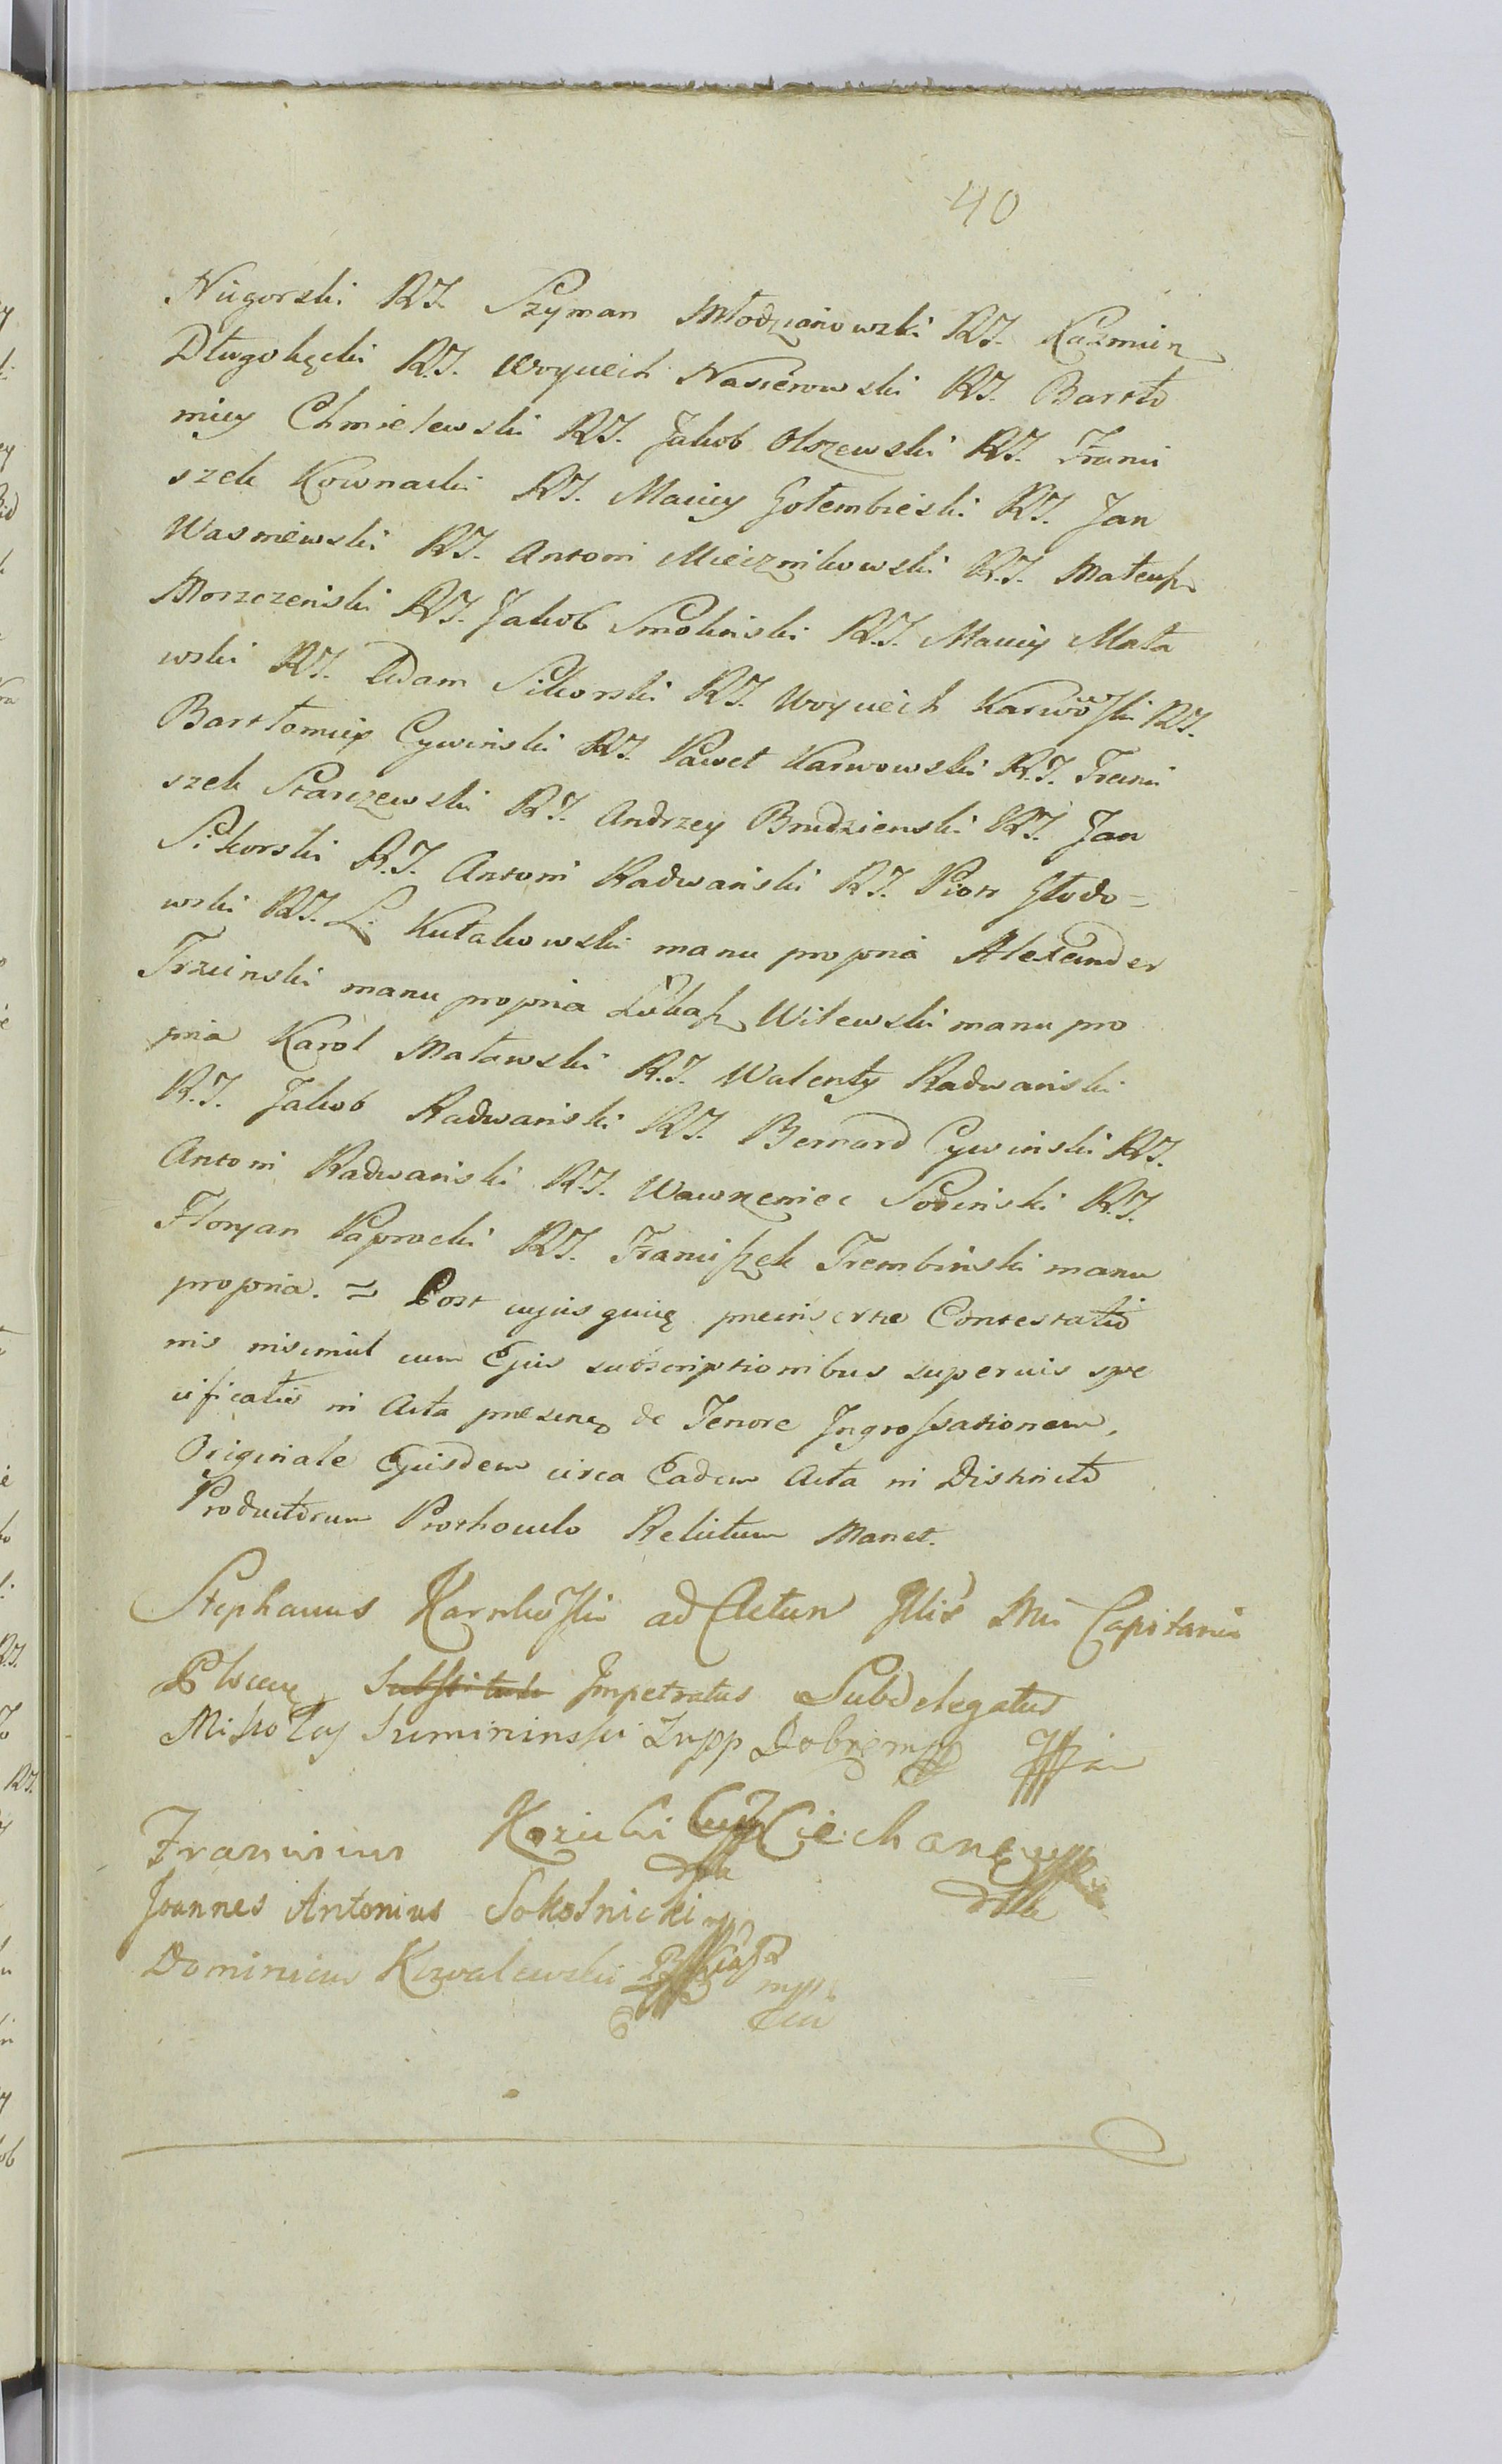 40
Niigorski RJ. Szyman Młodzianowski RJ. Kazmierz
Długołęcki RJ. Woyciech Nasierowski RJ. Barto
miey Chmielewski RJ. Jakob Olszewski RJ. Franci
szek Kownacki RJ. Maciey Gołembieski RJ. Jan
Wasniewski RJ. Antoni Miecznikowski RJ. Mateusz
Morzczeński RJ. Jakob Smoliński RJ. Maciey Mała
wski RJ. Adam Sikorski RJ. Woyciech Karwoski RJ.
Bartłomiey Cywiński RJ. Paweł Karwowski RJ. Franci
szek Starczewski RJ. Andrzey Brudzienski RJ. Jan
Sikorski RJ. Antoni Radwański RJ. Piotr Głodo=
wski RJ. L. Kułakowski manu propria Alexander
Trzcinski manu propria Łukasz Wilewski manu pro
pria Karol Maławski R.J. Walenty Radwański
R.J. Jakob Radwański RJ. Bernard Cywiński RJ.
Antoni Radwański R.J. Wawrzeniec Sosiński R.J.
Floryan Paprocki RJ. Franciszek Trembiński manu
propria. = Post cujus quię preinsertae Contestatio
nis insimul cum Ejus subscriptionibus superius spe
cificatis in Acta presenę de Tenore Ingrossationem,
Originale Ejusdem circa Eadem Acta in Districto
Productorum Prothoculo Relictum Manet.
Stephanus Karnkoski ad Actum Illis Mci Capitanei
Plocen Substitutu Impetratus Subdelegatus
Mikołay Sumininski Dobrzym
Franciscus Kozicki Ciechane
Joannes Antonius Sokolnicki
Dominicus Kowalewski